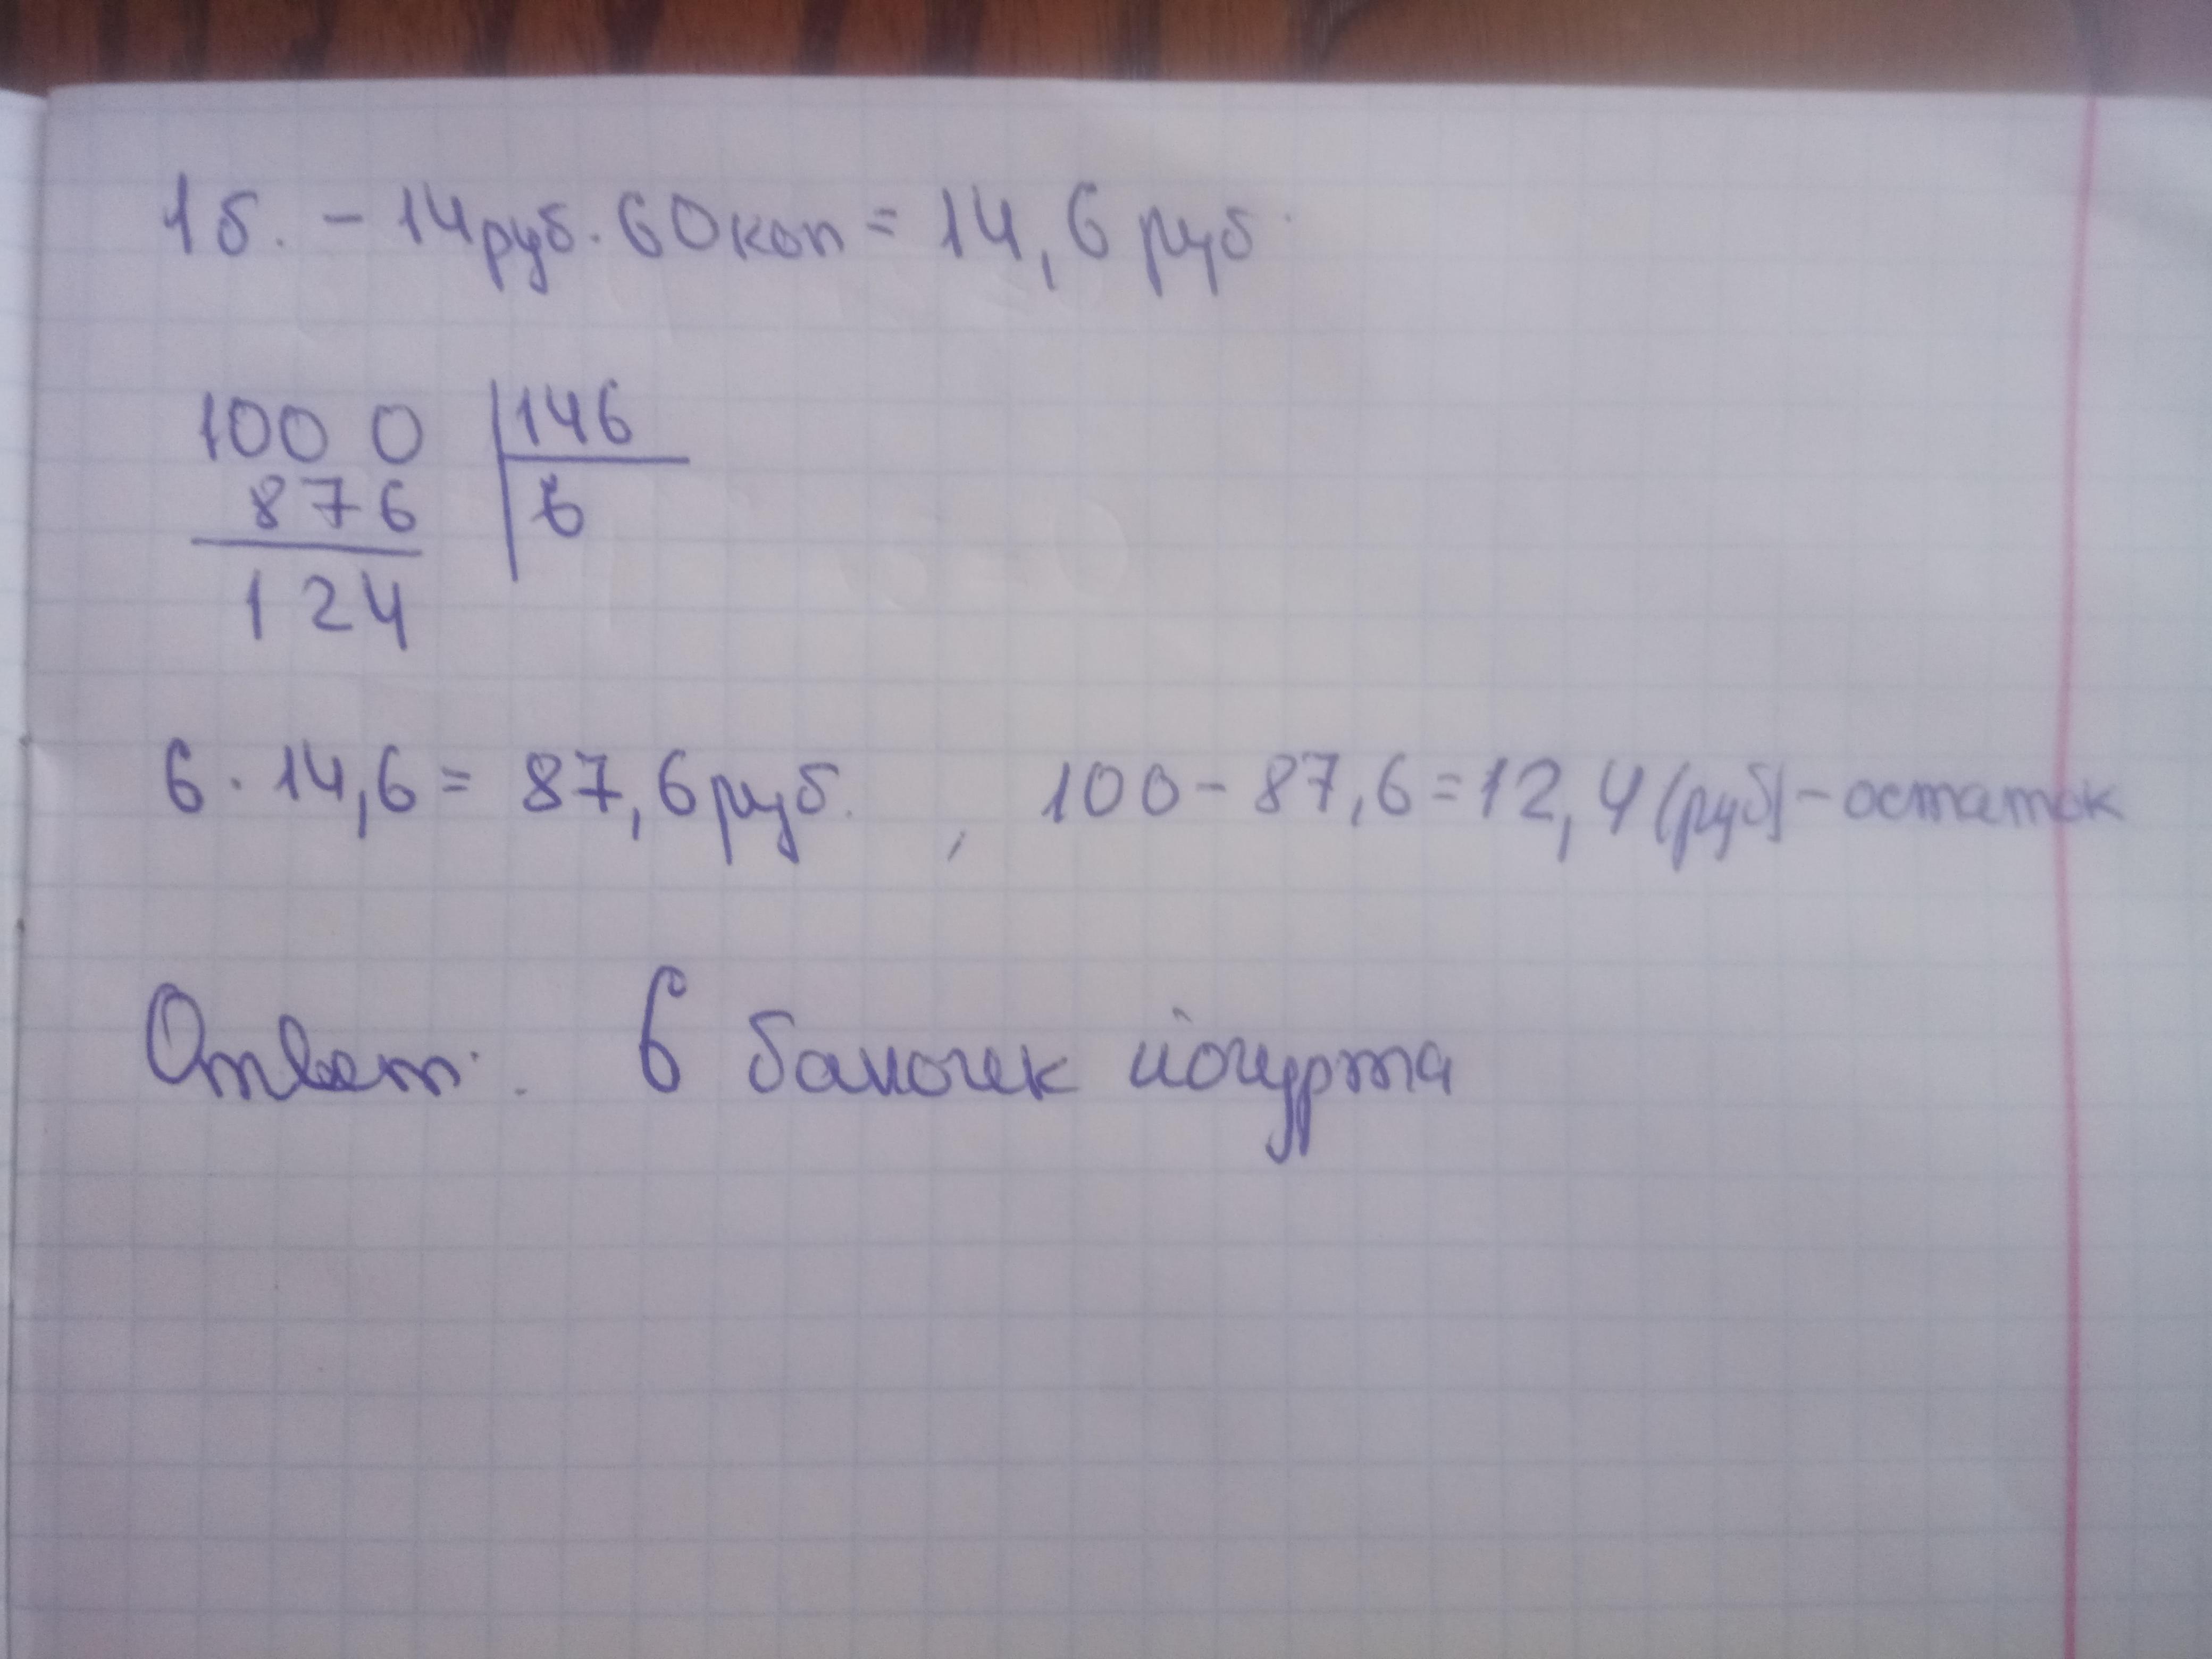 1б. - 14руб. 60коп = 14,6 руб.
1000 146
876 6
124
6 · 14,6 = 87,6 руб. , 100 - 87,6 = 12,4 (руб) - остаток
Ответ: 6 баночек йогурта